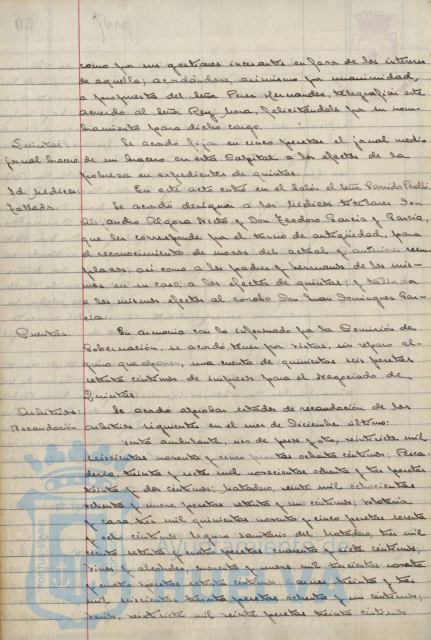 como por sus gestiones incesantes en favor de los intereses
de aquella; acordándose, asimismo por unanimidad,
a propuesta del señor Perez Hernandez, telegrafiar este
acuerdo al señor Rey Mora, felicitándole por su nom-
bramiento para dicho cargo.
Quintas:
jornal bracero.
Se acordó fijar en cinco pesetas el jornal medio
de un bracero en esta Capital a los efectos de la
pobreza en expedientes de quintas.
Id. Médicos
Tallador
En este acto entró en el Salón el señor Garrido
Se acordó designar a los médicos titulares Don
Alejandro Algora Nieto y Don Teodoro Garcia y Garcia,
que les corresponde por el turno de antigüedad, para
el reconocimiento de mozos del actual y anteriores reem-
plazos, asi como a los padres y hermanos de los mis-
mos en su caso, a los efectos de quintas; y tallador
a los mismos efectos al Don Juan Dominguez Gar-
cia.
Cuentas:
En armonía con lo informado por la Comisión de
Gobernación, se acordó tener por vistas, sin reparo al-
guno que oponer, una cuenta de quinientas seis pesetas
setenta céntimos de impresos para el Negociado de
Quintas.
Arbitrios:
Recaudación.
Se acordó aprobar estados de recaudación de los
arbitrios siguientes en el mes de Diciembre último:
Venta ambulante, uso de pesas y, veintisiete mil
seiscientas noventa y cinco pesetas ochenta céntimos; Pesca-
dería, treinta y siete mil novecientas ochenta y tres pesetas
treinta y dos céntimos; Matadero, veinte mil ochocientas
ochenta y nueve pesetas setenta y un céntimos;
y casa tres mil quinientas noventa y cinco pesetas
y ocho céntimos; sanitario del Matadero, tres mil
ciento setenta y cuatro pesetas cuarenta y siete céntimos;
Vinos y alcoholes, cuarenta y nueve mil trescientas noventa
y cuatro pesetas setenta céntimos; Carnes, treinta y tres
mil seiscientas treinta pesetas ochenta y un céntimos;
veintisiete mil veinte pesetas treinta céntimos